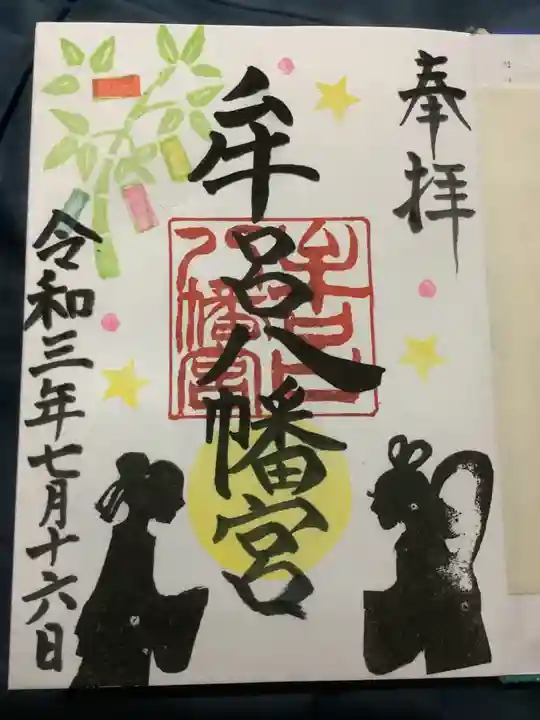 奉拝
牟呂八幡宮
牟呂八幡宮
令和三年七月十六日